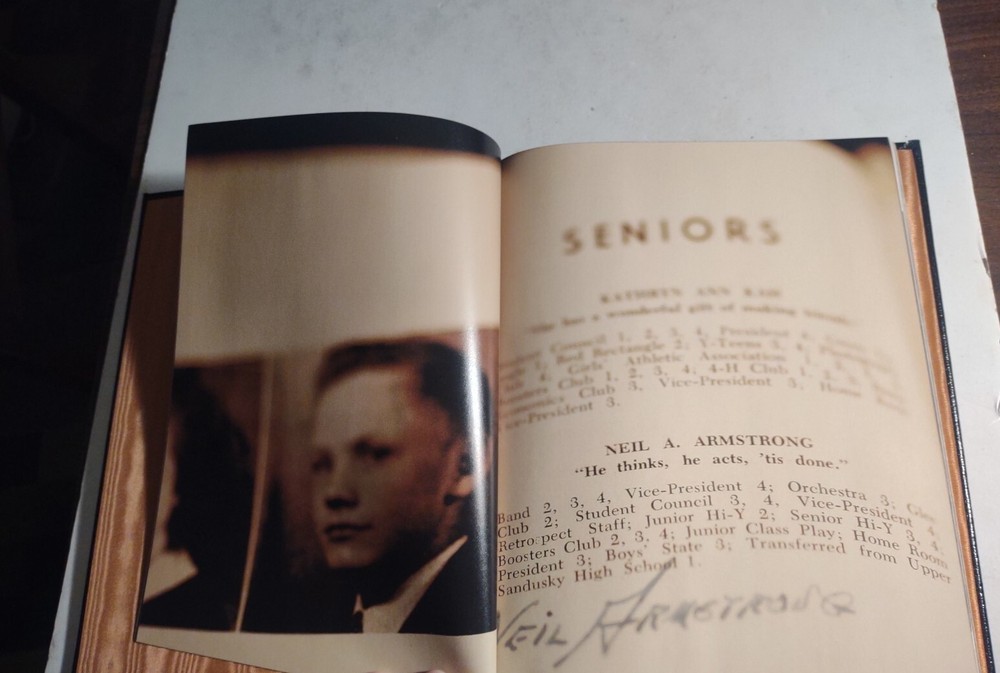 SENIORS
KATHRYN ANN
has a wonderful gift of making
Council 1, 2, 3, 4, President 4;
1; Red Rectangle 2; Y-Teens 3, 4,
4; Girls' Athletic Association 1,
Club 1, 2, 3, 4; 4-H Club 1, 2,
Club 3, Vice-President 3; Home
President 3.
NEIL A. ARMSTRONG
"He thinks, he acts, 'tis done."
Band 2, 3, 4, Vice-President 4; Orchestra 3; Glee
Club 2; Student Council 3, 4, Vice-President 4;
Retrospect Staff; Junior Hi-Y 2; Senior Hi-Y 3, 4;
Boosters Club 2, 3, 4; Junior Class Play; Home Room
President 3; Boys' State 3; Transferred from Upper
Sandusky High School 1.
NEIL ARMSTRONG